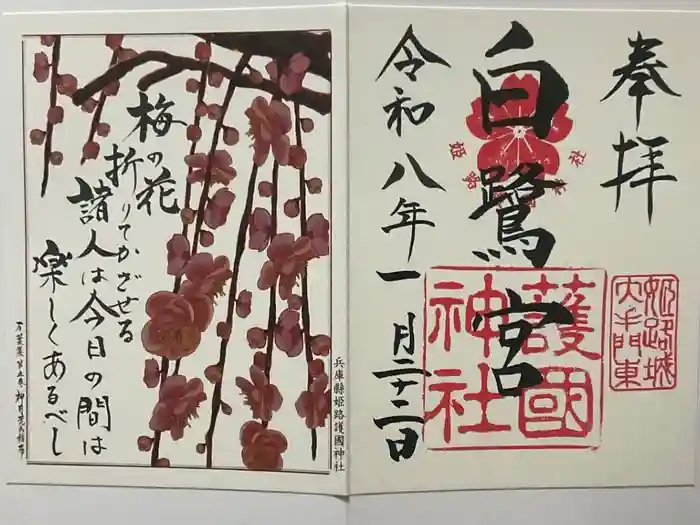 奉拝
白鷺宮
令和八年一月二十二日
護國神社
姫路城大手門東
梅の花
折りてかざせる
諸人は今日の間は
楽しくあるべし
万葉集第五巻
兵庫縣姫路護國神社